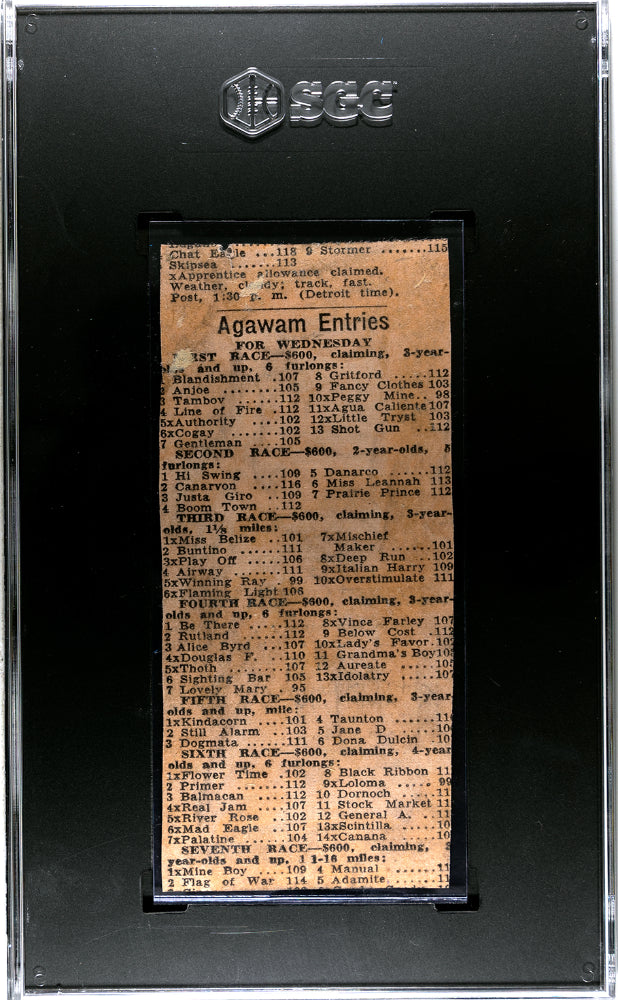 SGC
Chat Eagle ...118 9 Stormer .......115
Skipsea .......113
xApprentice allowance claimed.
Weather, cl dy; track, fast.
Post, 1:30 P. m. (Detroit time).
Agawam Entries
FOR WEDNESDAY
RST RACE—$600, claiming, 3-year-
and up, 6 furlongs:
1 Blandishment .107 8 Gritford .....112
2 Anjoe ........105 9 Fancy Clothes 103
3 Tambov ......112 10xPeggy Mine.. 98
4 Line of Fire .112 11xAgua Caliente 107
5xAuthority ....102 12xLittle Tryst 103
6xCogay .......102 13 Shot Gun ..112
7 Gentleman ....105
SECOND RACE—$600, 2-year-olds, 5
furlongs:
1 Hi Swing ....109 5 Danarco ......112
2 Canarvon ....116 6 Miss Leannah 113
3 Justa Giro ..109 7 Prairie Prince 112
4 Boom Town ..112
THIRD RACE—$600, claiming, 3-year-
olds, 1⅛ miles:
1xMiss Belize ..101 7xMischief
2 Buntino ......111 Maker ......101
3xPlay Off .....106 8xDeep Run ..102
4 Airway ......111 9xItalian Harry 109
5xWinning Ray . 99 10xOverstimulate 111
6xFlaming Light 106
FOURTH RACE—$600, claiming, 3-year-
olds and up, 6 furlongs:
1 Be There .....112 8xVince Farley 107
2 Rutland .....112 9 Below Cost .112
3 Alice Byrd ...107 10xLady's Favor.102
4xDouglas F. ..110 11 Grandma's Boy105
5xThoth .......107 12 Aureate .....105
6 Sighting Bar 105 13xIdolatry .....107
7 Lovely Mary . 95
FIFTH RACE—$600, claiming, 3-year
olds and up, mile:
1xKindacorn ....101 4 Taunton ......11
2 Still Alarm ..103 5 Jane D ......10
3 Dogmata ......111 6 Dona Dulcin .10
SIXTH RACE—$600, claiming, 4-year
olds and up, 6 furlongs:
1xFlower Time .102 8 Black Ribbon 11
2 Primer ......112 9xLoloma ..... 99
3 Balmacan ....112 10 Dornoch .....11
4xReal Jam ....107 11 Stock Market 11
5xRiver Rose ..102 12 General A. ..11
6xMad Eagle ..107 13xScintilla ....10
7xPalatine .....104 14xCanana .....10
SEVENTH RACE—$600, claiming,
year-olds and up, 1 1-16 miles:
1xMine Boy ....109 4 Manual ......11
2 Flag of War 114 5 Adamite ......11